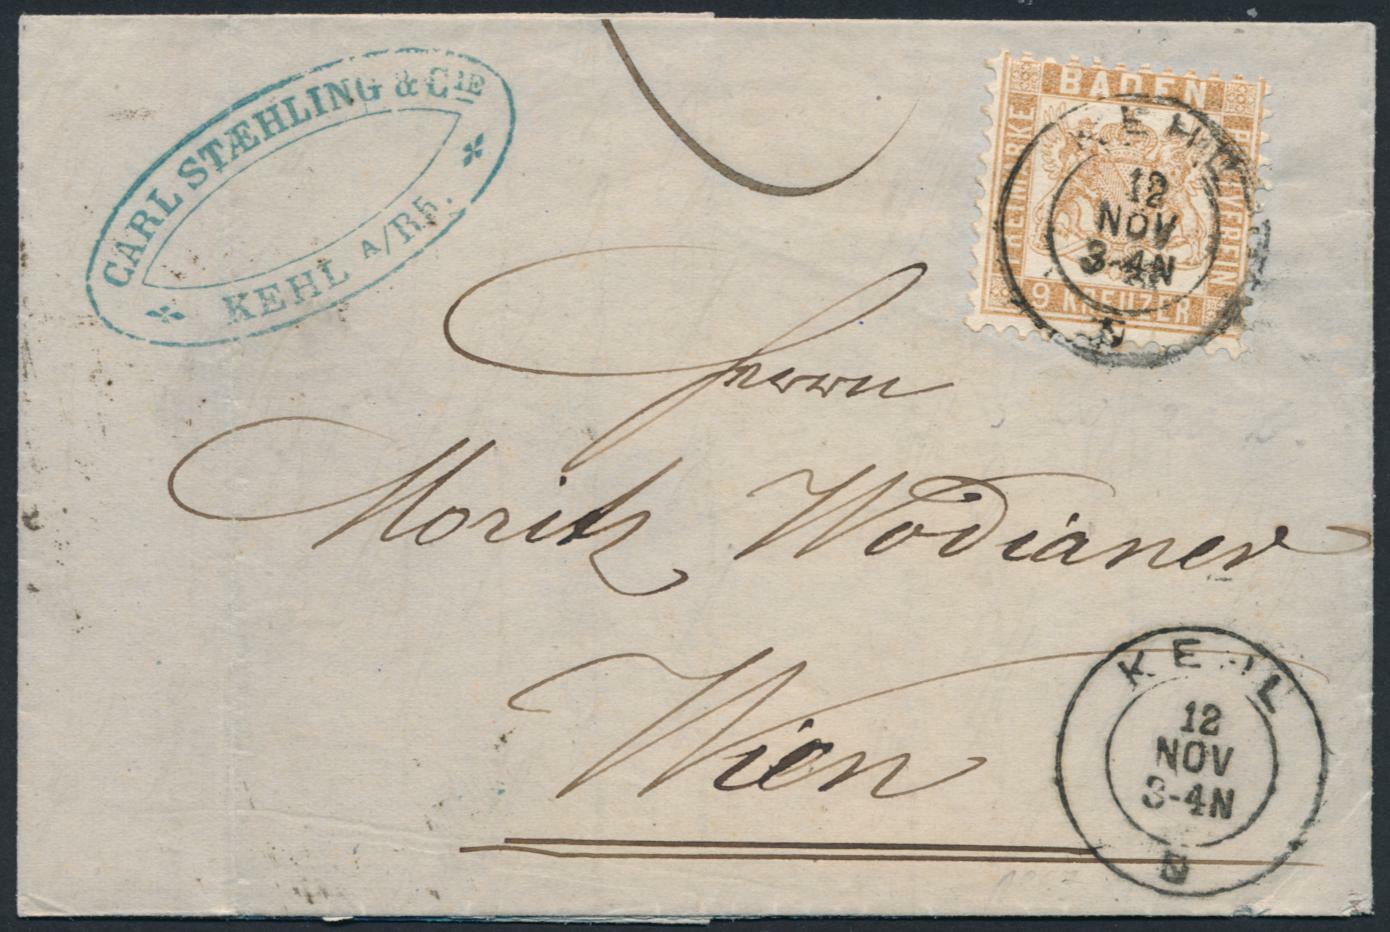 CARL STÆHLING & CIE
KEHL A/Rh.
BADEN
FREIMARKE
POSTVEREIN
9 KREUZER
KEHL
12
NOV
3-4N
Herrn
Moritz Wodianer
Wien
KEHL
12
NOV
3-4N